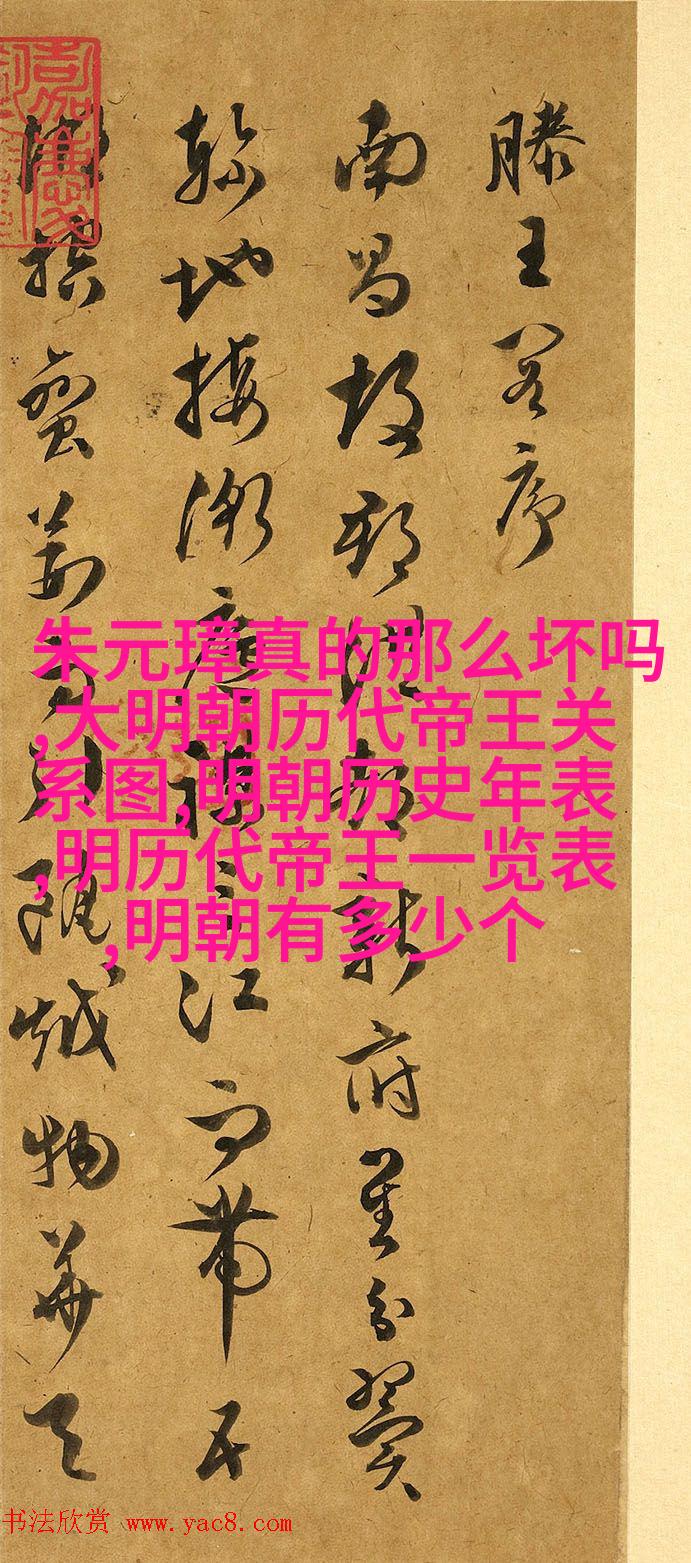 滕王閣序
南昌故郡洪都新府星分翼
軫地接衡廬襟三江而帶五
湖控蠻荊而引甌越物華天
朱元璋真的那么坏吗
,大明朝历代帝王关
系图,明朝历史年表
,明历代帝王一览表
,明朝有多少个
书法欣赏 www.yac8.com